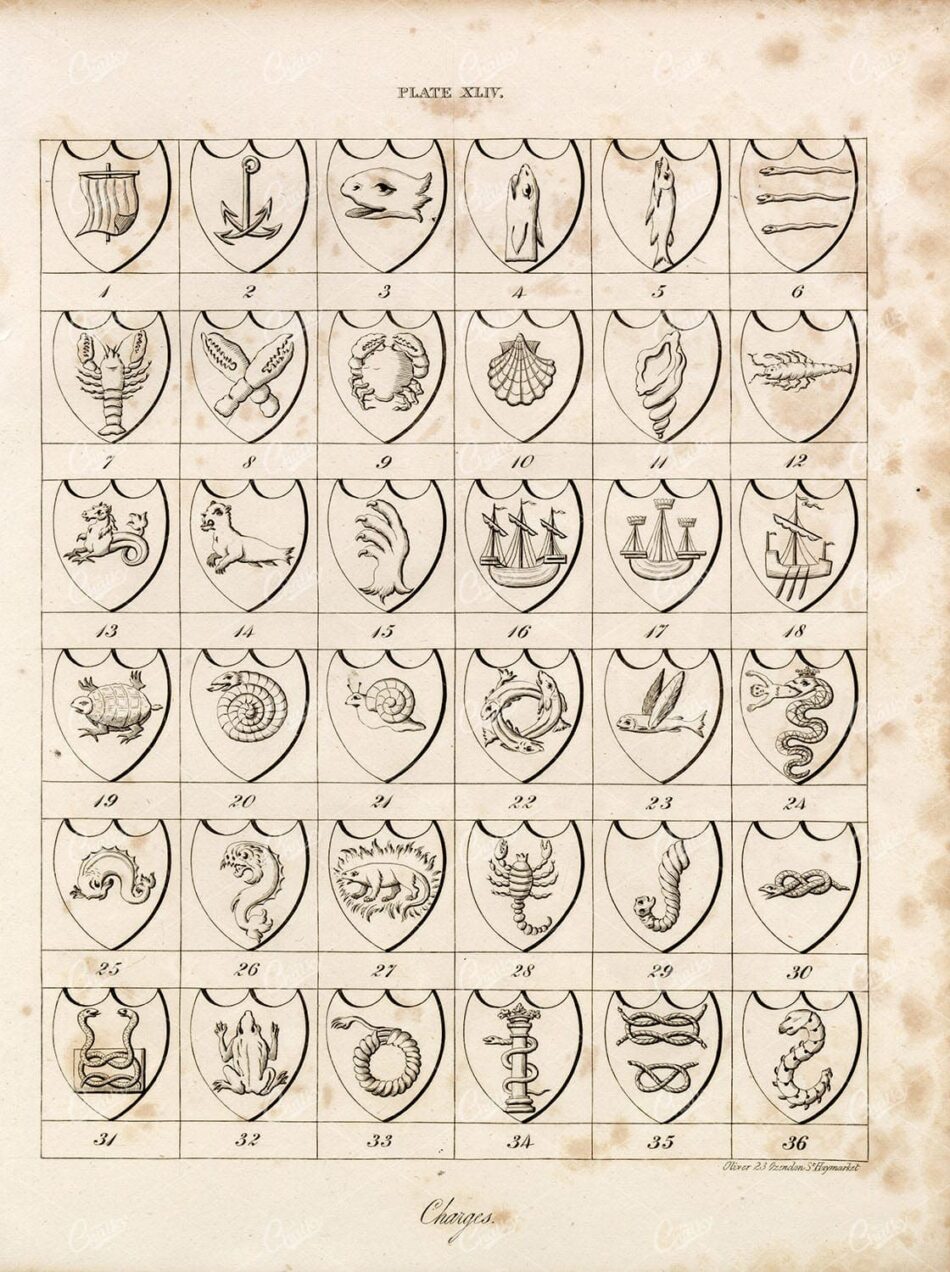 PLATE XLIV.
1 2 3 4 5 6
7 8 9 10 11 12
13 14 15 16 17 18
19 20 21 22 23 24
25 26 27 28 29 30
31 32 33 34 35 36
Oliver 23 St Haymarket
Charges.